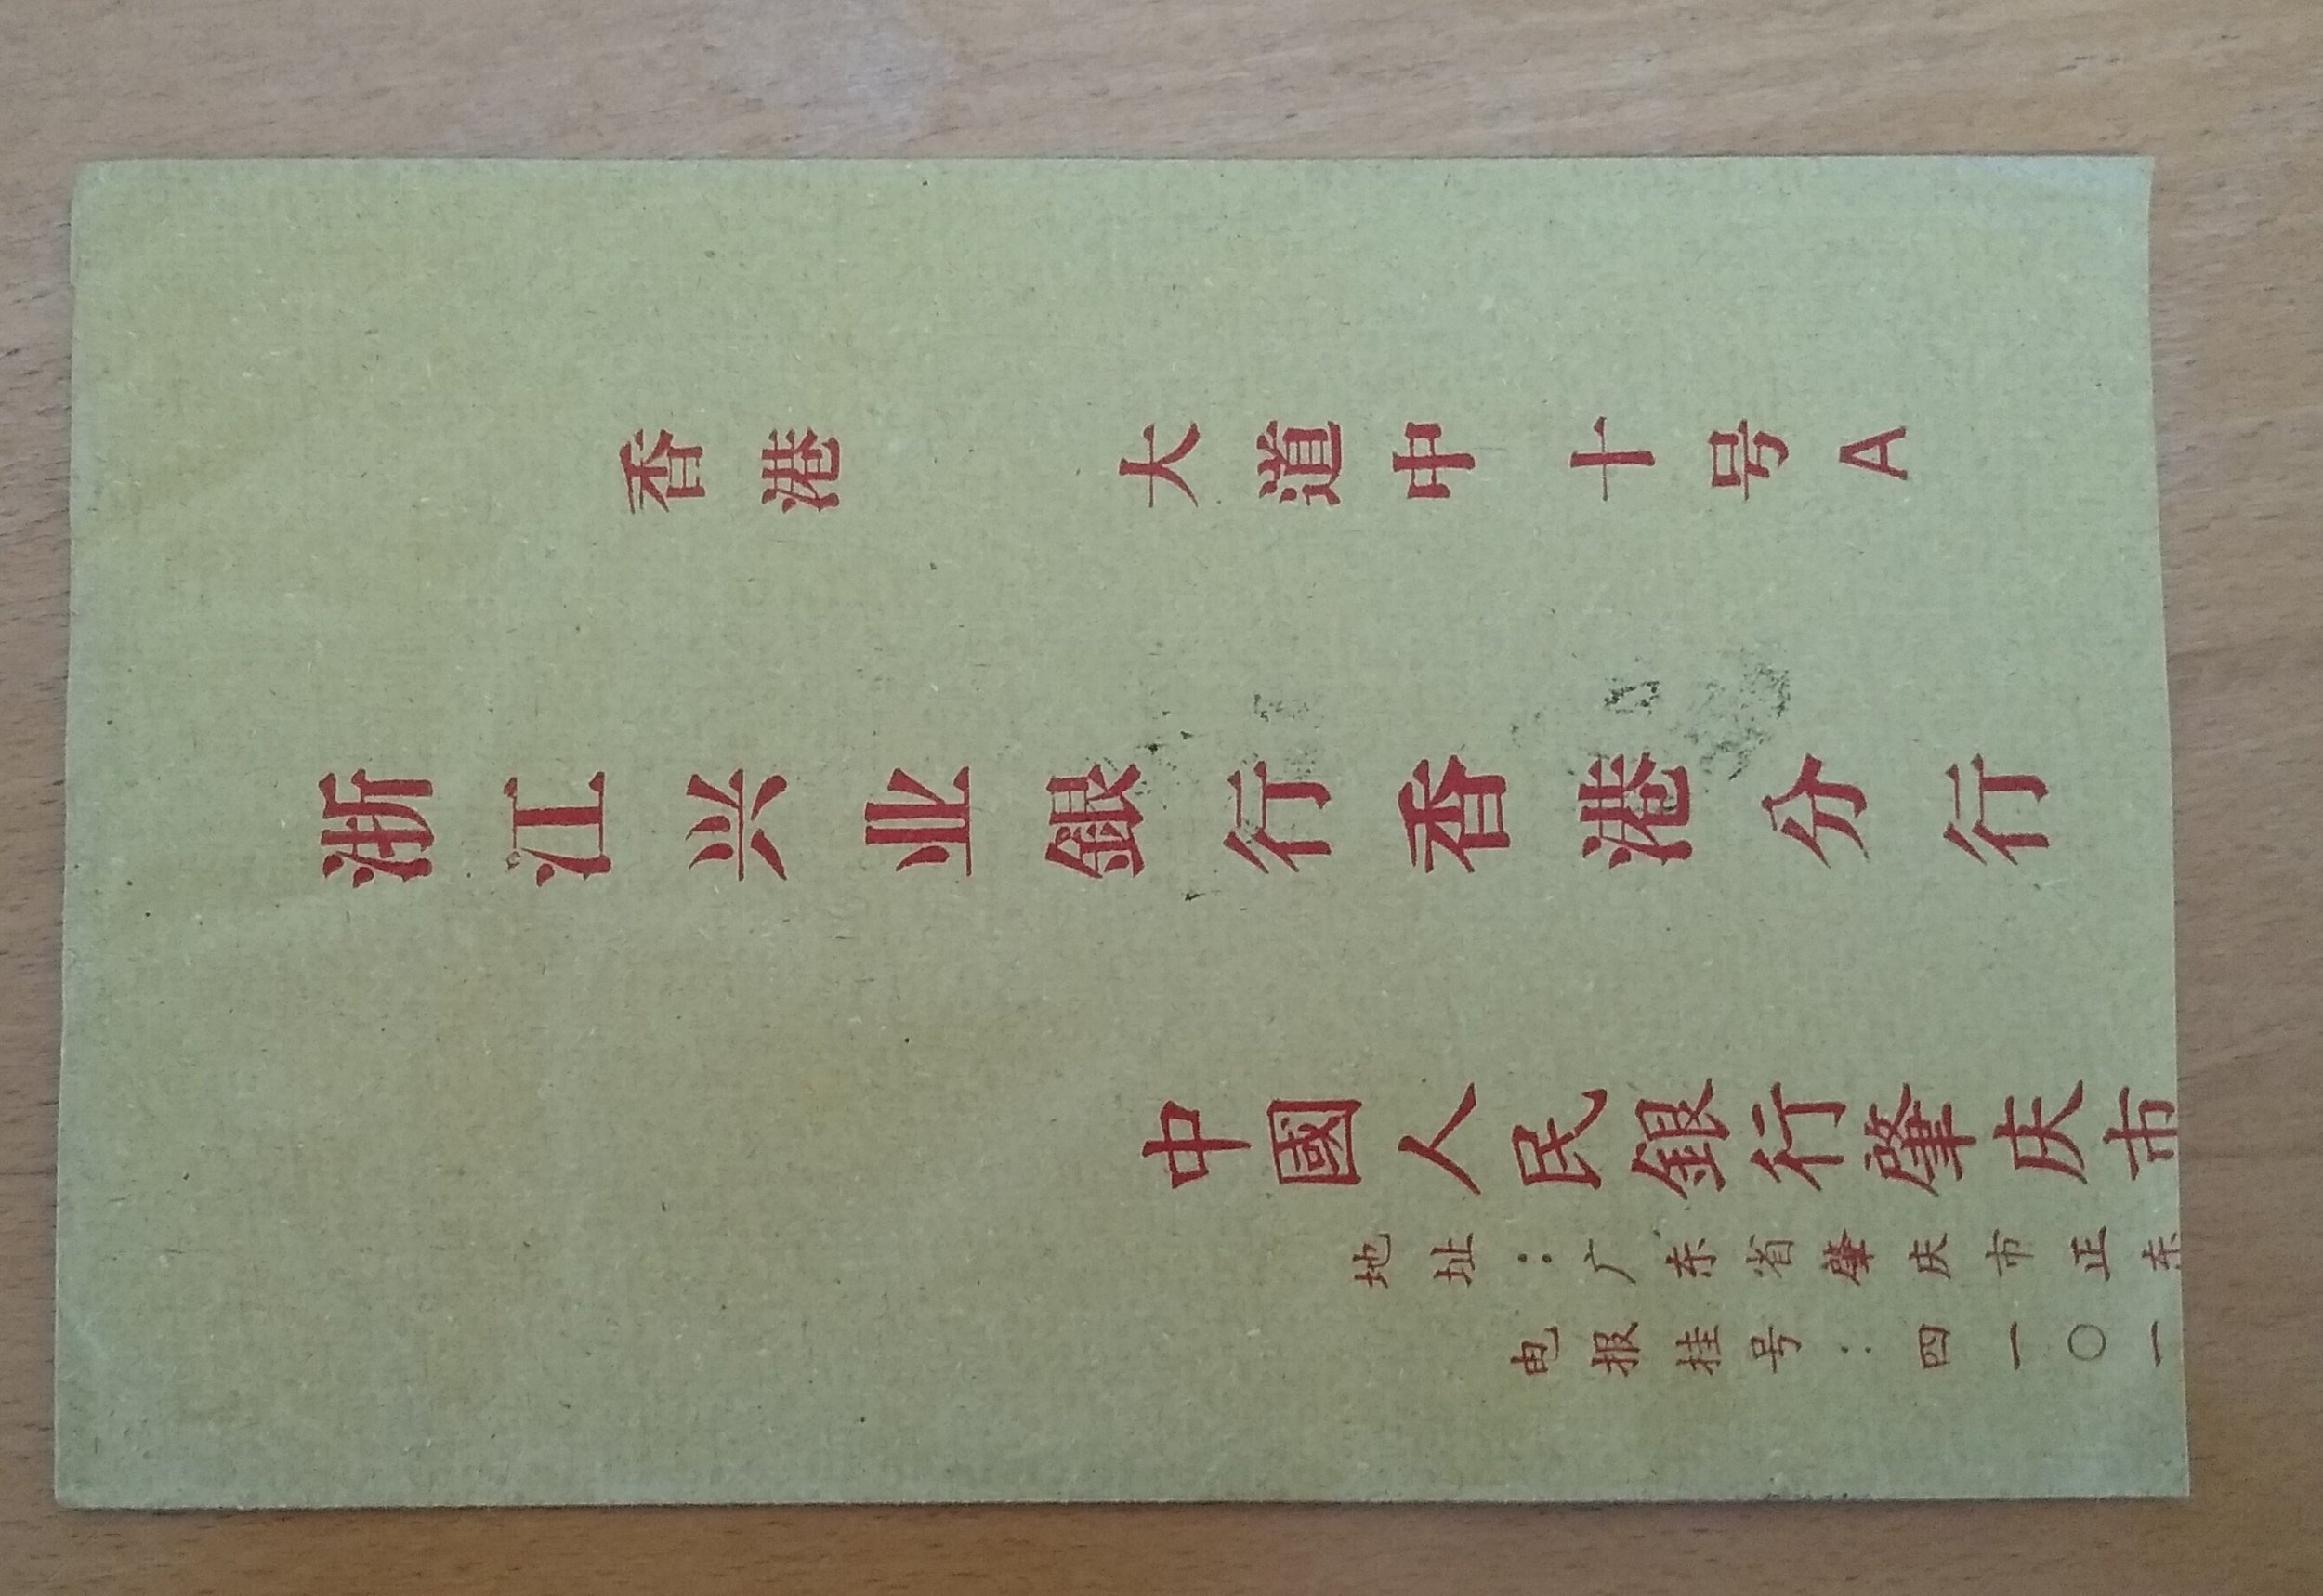 香港　大道中十号A
浙江兴业銀行香港分行
中國人民銀行肇庆市
地址：广东省肇庆市正东
电报挂号：四一〇一